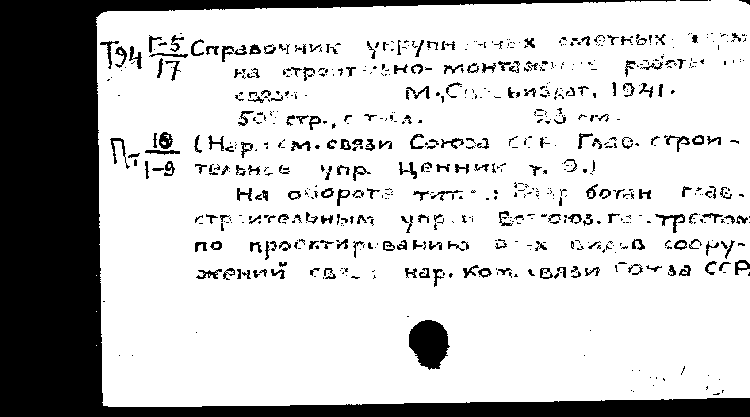 Т94 Г-5/17 Справочник укрупненных сметных норм
на строительно-монтажные работы по
связи. М., Связьиздат, 1941.
505 стр., с табл. 23 см.
Пт 10/1-9 (Нар. ком. связи Союза ССР. Глав. строи-
тельное упр. Ценник т. 9.)
На обороте тит. л.: Разработан глав.
строительным упр. и Всесоюз. гос. трестом
по проектированию всех видов соору-
жений связи нар. ком. связи Союза ССР.